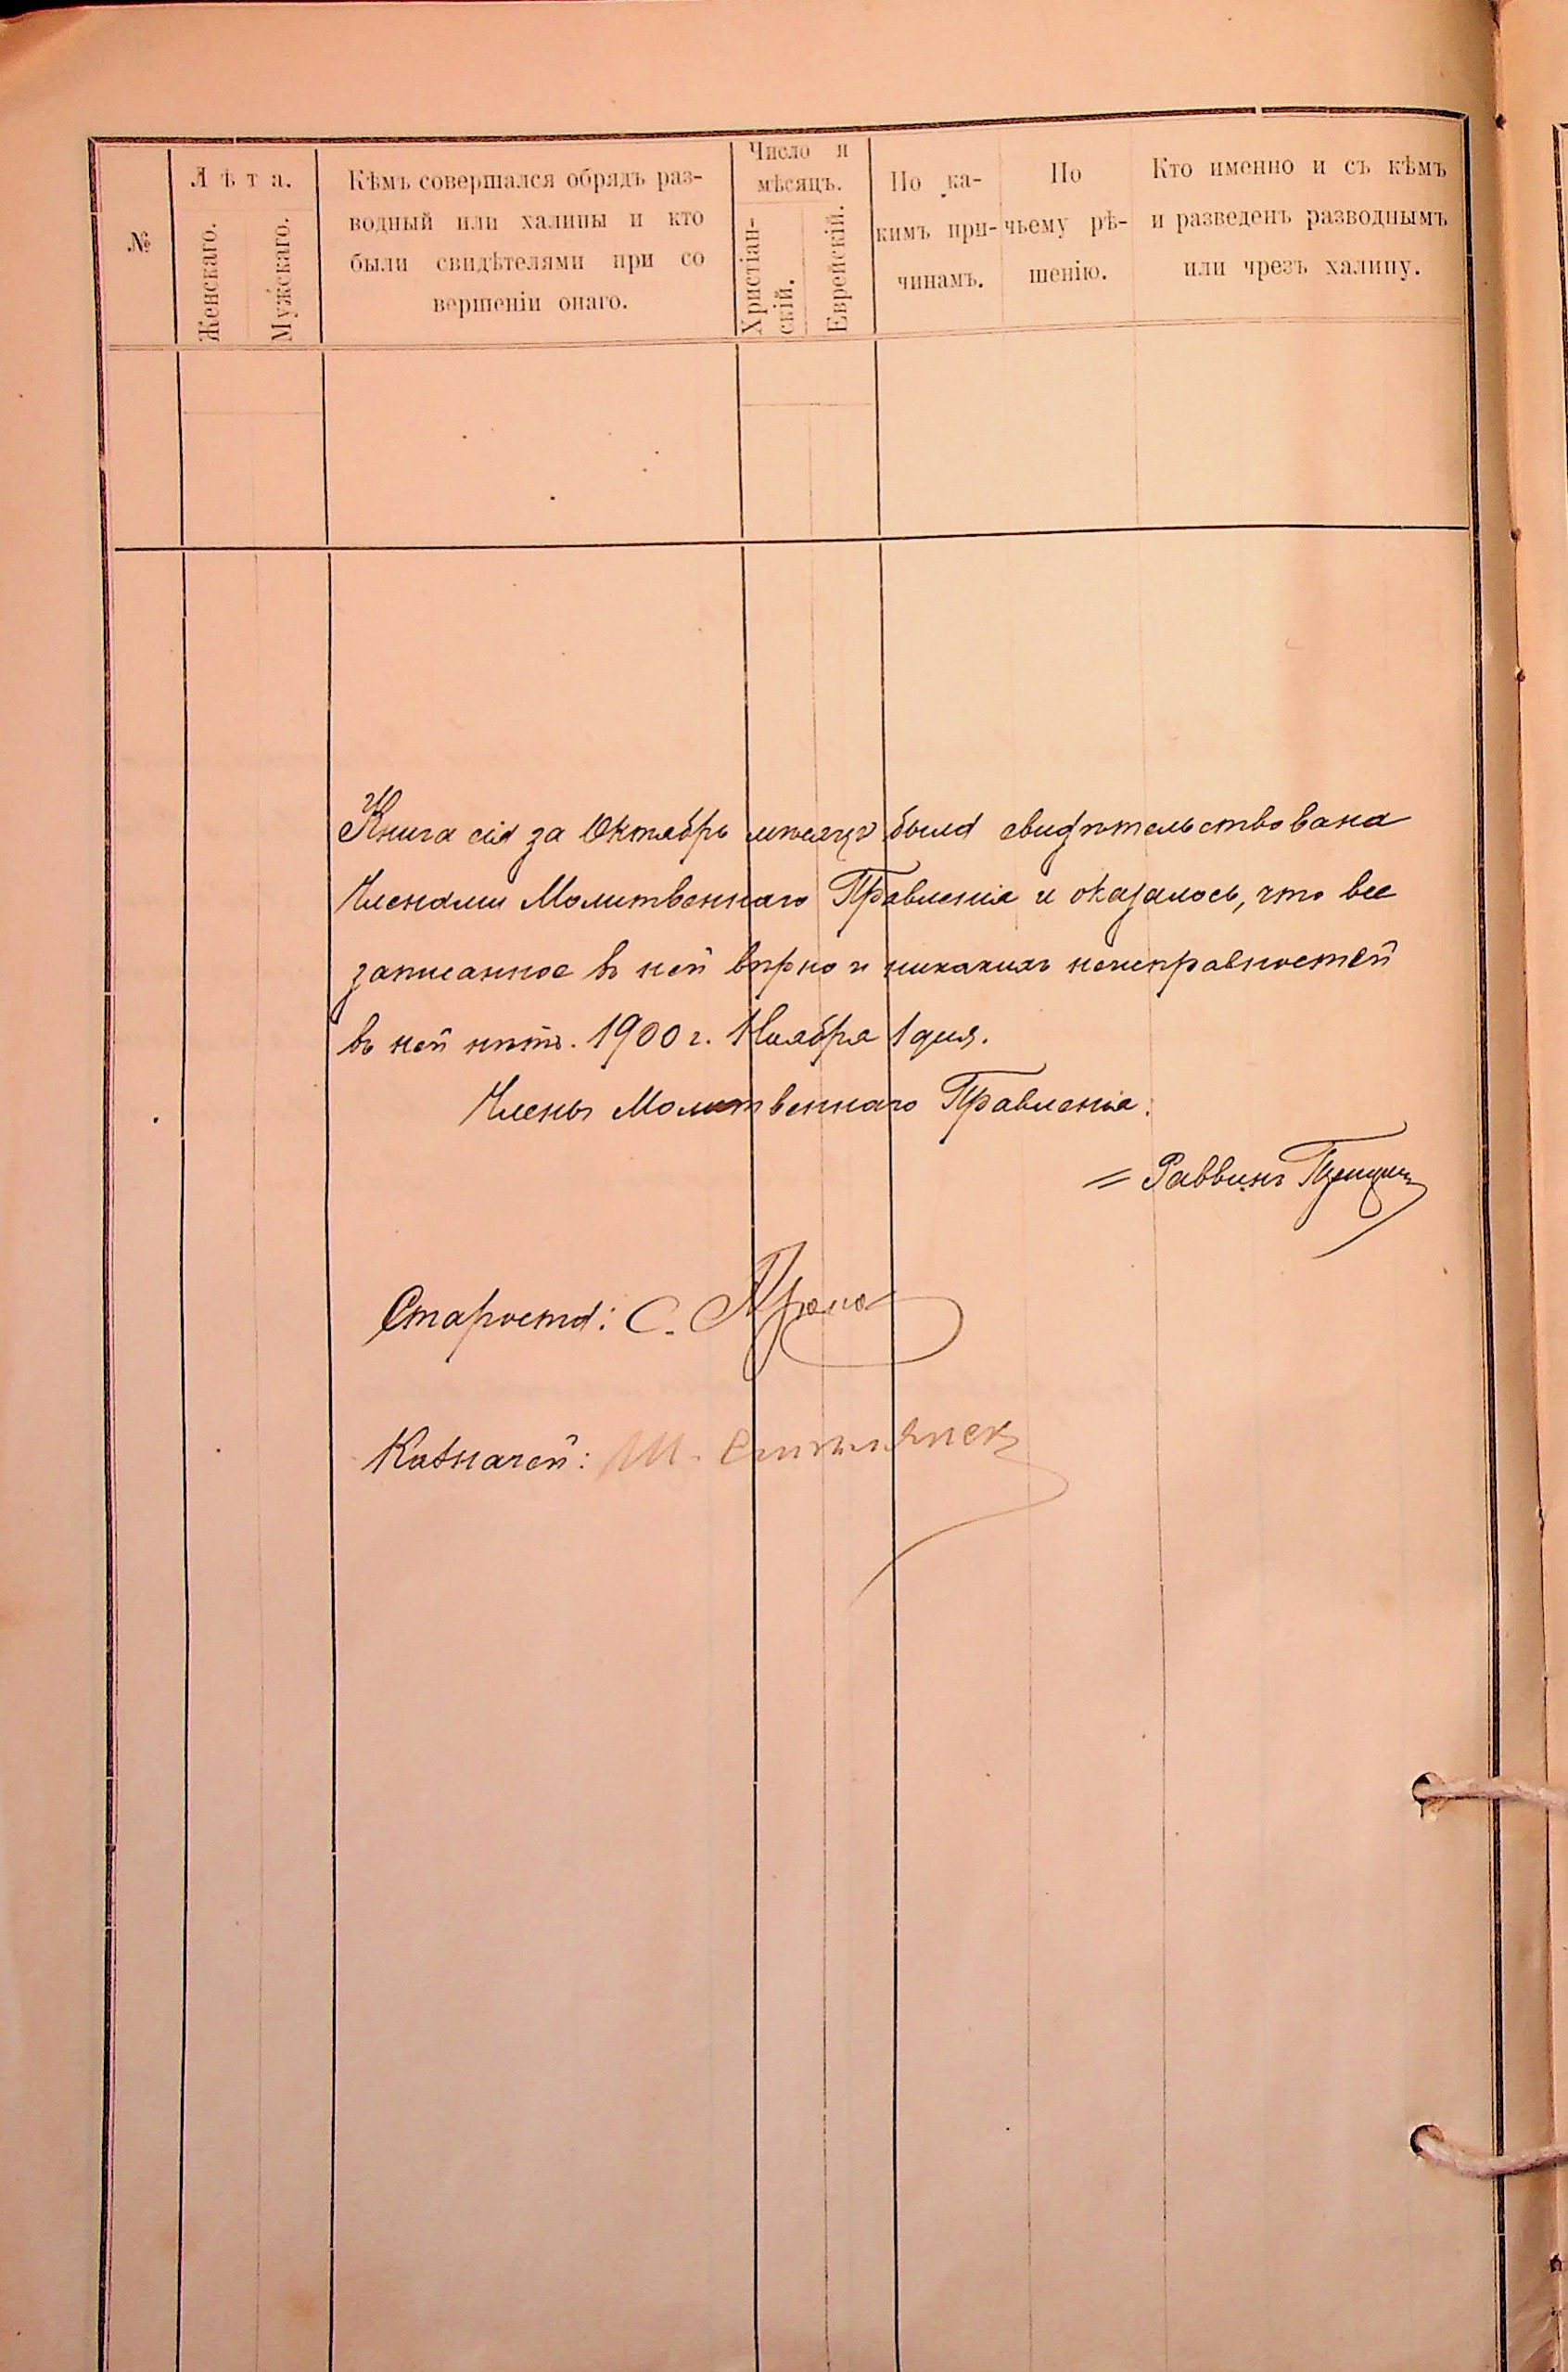 №
Лѣта.
Женскаго.
Мужскаго.
Кѣмъ совершался обрядъ раз-
водный или халицы и кто
были свидѣтелями при со
вершеніи онаго.
Число и
мѣсяцъ.
Христіан-
скій.
Еврейскій.
По ка-
кимъ при-
чинамъ.
По
чьему рѣ-
шенію.
Кто именно и съ кѣмъ
и разведенъ разводнымъ
или чрезъ халицу.
Книга сія за Октябрь мѣсяцъ была свидѣтельствована
Членами Молитвеннаго Правленія и оказалось, что все
записанное въ ней вѣрно и никакихъ неисправностей
въ ней нѣтъ. 1900 г. Ноября 1 дня.
Члены Молитвеннаго Правленія:
= Раввинъ
Староста: С.
Казначей: Ш.